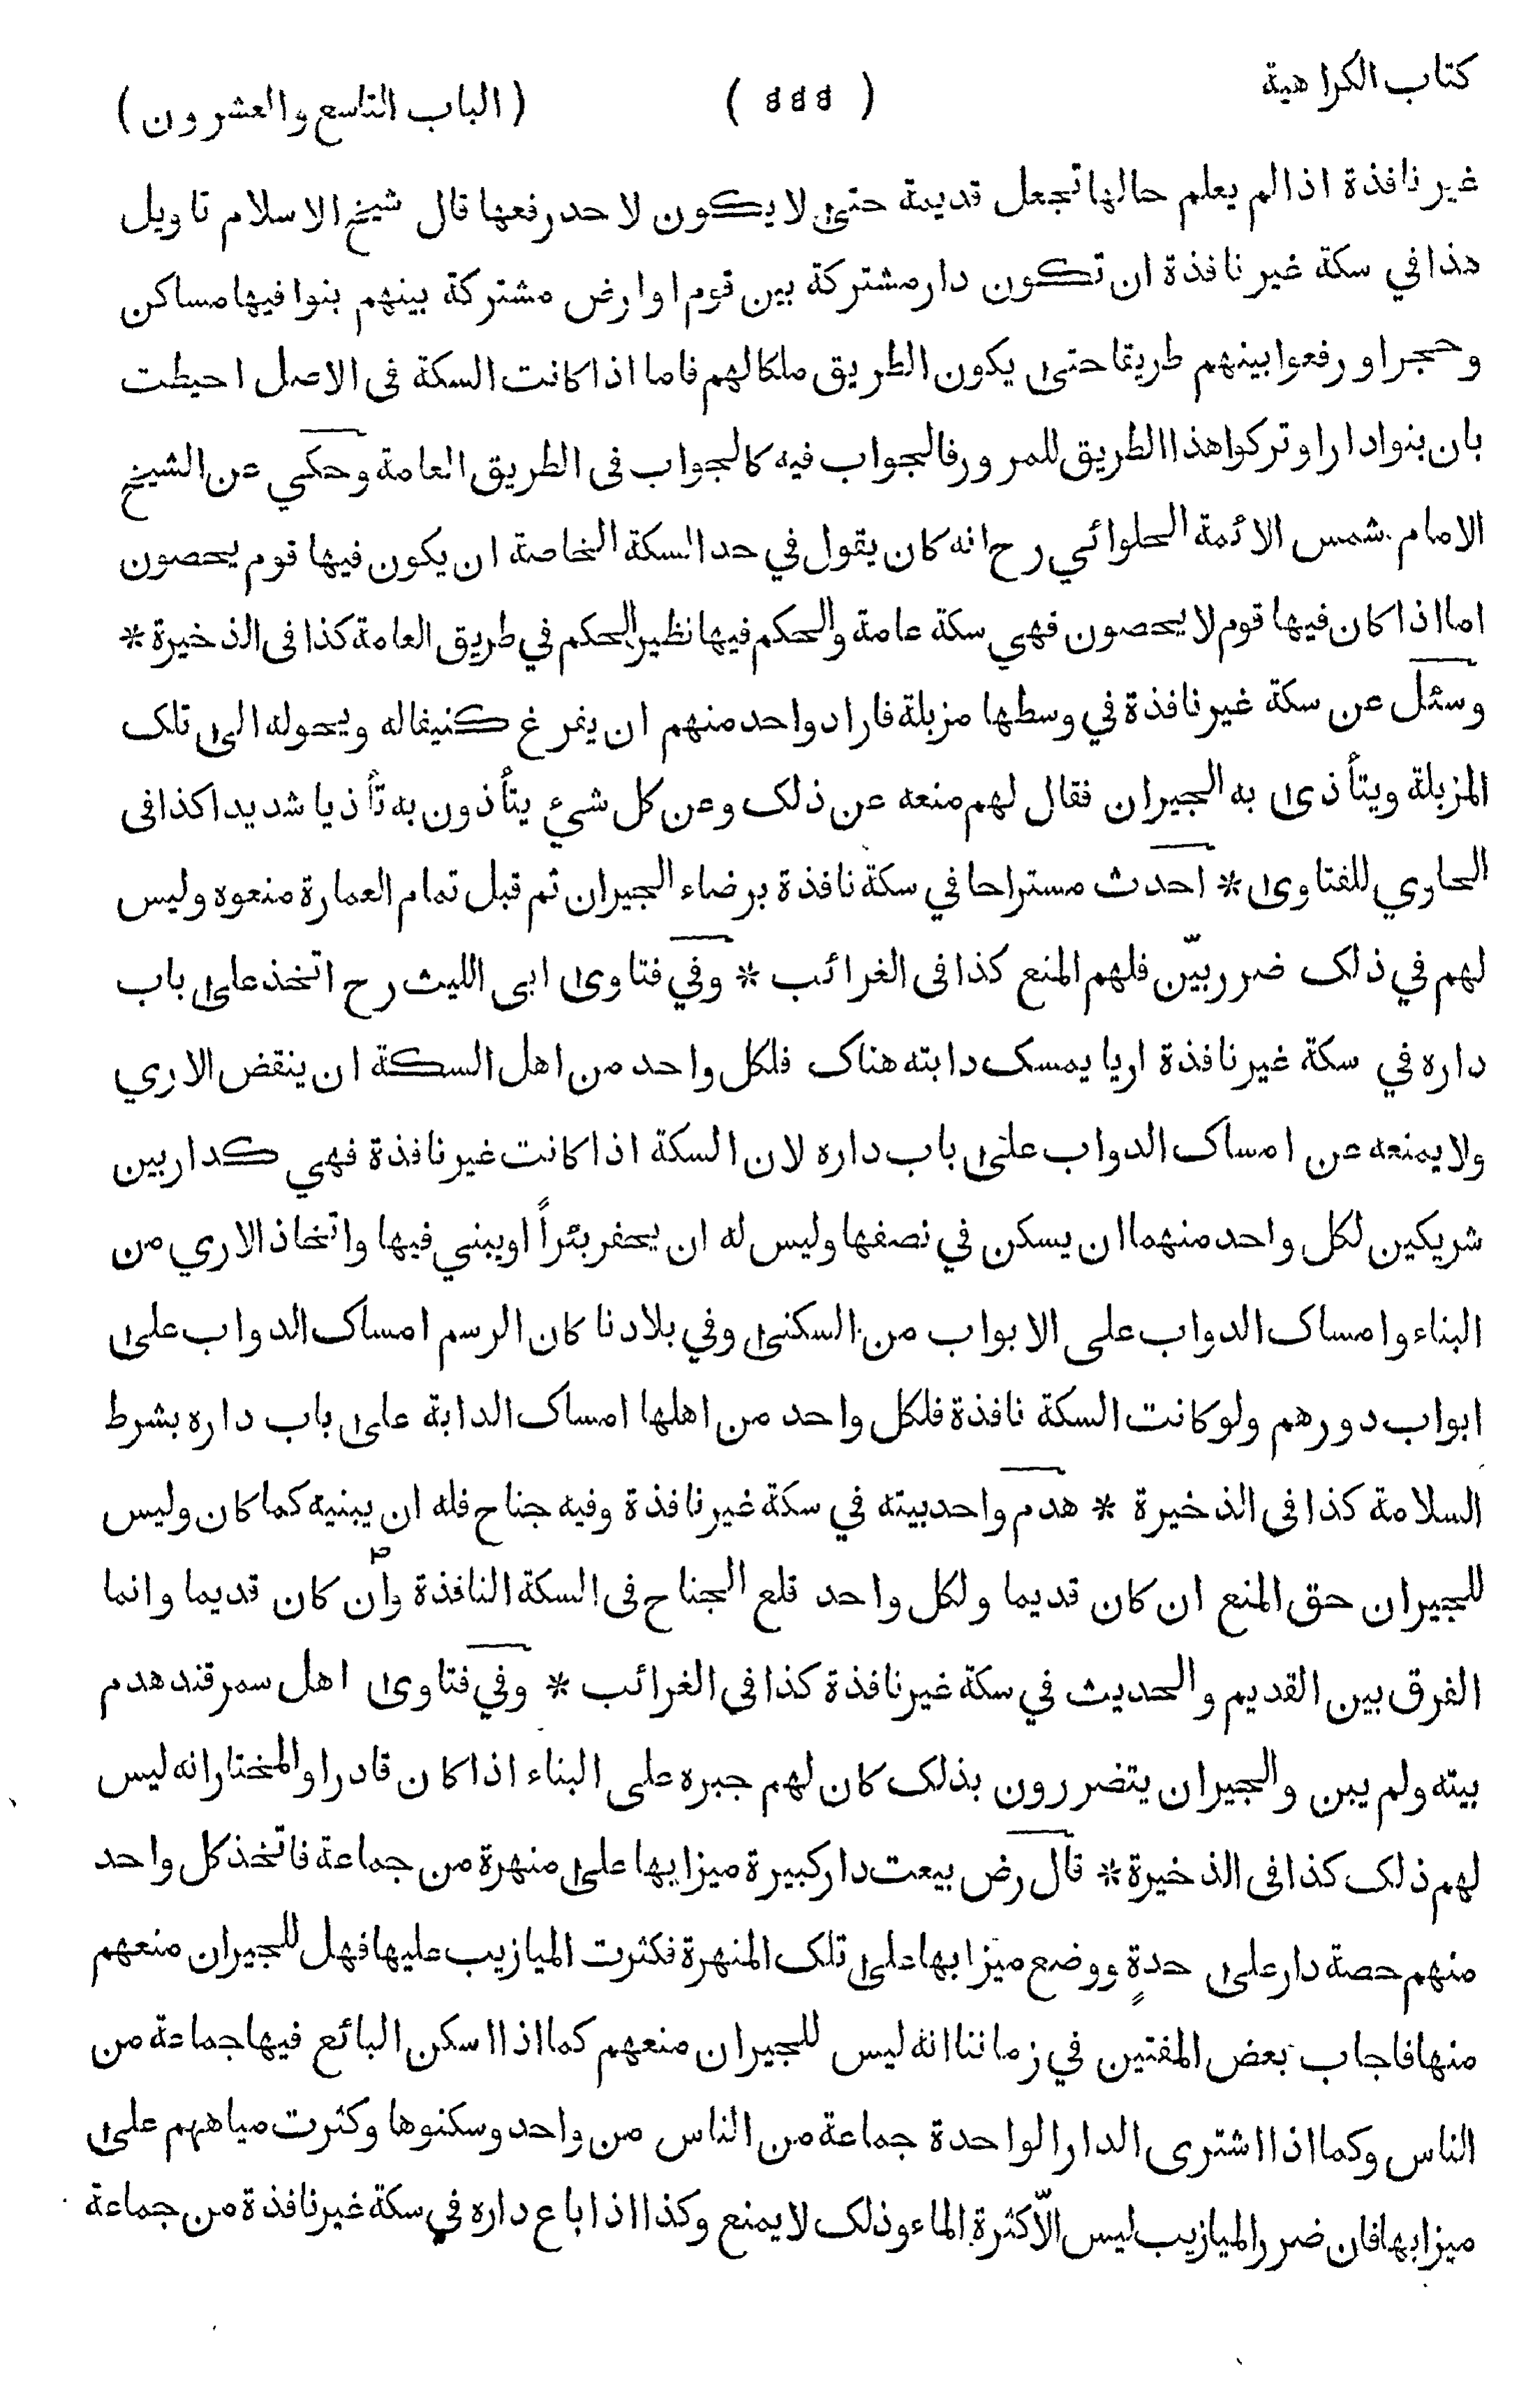 كتاب الكراهية ( ۵۵۵ ) ( الباب التاسع والعشرون )
غير نافذة اذا لم يعلم حالها تجعل قديمة حتى لا يكون لاحد رفعها قال شيخ الاسلام تاويل
هذا في سكة غير نافذة ان تكون دار مشتركة بين قوم او ارض مشتركة بينهم بنوا فيها مساكن
وحجرا و رفعوا بينهم طريقا حتى يكون الطريق ملكا لهم فاما اذا كانت السكة فى الاصل احيطت
بان بنوا دارا و تركوا هذا الطريق للمرور فالجواب فيه كالجواب فى الطريق العامة وحكي عن الشيخ
الامام شمس الائمة الحلوائي رح انه كان يقول في حد السكة الخاصة ان يكون فيها قوم يحصون
اما اذا كان فيها قوم لا يحصون فهي سكة عامة والحكم فيها نظير الحكم في طريق العامة كذا فى الذخيرة *
وسئل عن سكة غير نافذة في وسطها مزبلة فاراد واحد منهم ان يفرغ كنيفا له ويحوله الى تلك
المزبلة ويتأذى به الجيران فقال لهم منعه عن ذلك وعن كل شيء يتأذون به تأذيا شديدا كذا فى
الحاوي للفتاوى * احدث مستراحا في سكة نافذة برضاء الجيران ثم قبل تمام العمارة منعوه وليس
لهم في ذلك ضرر بيّن فلهم المنع كذا فى الغرائب * وفي فتاوى ابى الليث رح اتخذ على باب
داره في سكة غير نافذة اريا يمسك دابته هناك فلكل واحد من اهل السكة ان ينقض الاري
ولا يمنعه عن امساك الدواب على باب داره لان السكة اذا كانت غير نافذة فهي كدار بين
شريكين لكل واحد منهما ان يسكن في نصفها وليس له ان يحفر بئراً او يبني فيها واتخاذ الاري من
البناء وامساك الدواب على الابواب من السكنى وفي بلادنا كان الرسم امساك الدواب على
ابواب دورهم ولو كانت السكة نافذة فلكل واحد من اهلها امساك الدابة على باب داره بشرط
السلامة كذا فى الذخيرة * هدم واحد بيته في سكة غير نافذة وفيه جناح فله ان يبنيه كما كان وليس
للجيران حق المنع ان كان قديما ولكل واحد قلع الجناح فى السكة النافذة وان كان قديما وانما
الفرق بين القديم والحديث في سكة غير نافذة كذا فى الغرائب * وفي فتاوى اهل سمرقند هدم
بيته ولم يبن والجيران يتضررون بذلك كان لهم جبره على البناء اذا كان قادرا والمختار انه ليس
لهم ذلك كذا فى الذخيرة * قال رض بيعت دار كبيرة ميزابها على منهرة من جماعة فاتخذ كل واحد
منهم حصة دار على حدةٍ ووضع ميزابها على تلك المنهرة فكثرت الميازيب عليها فهل للجيران منعهم
منها فاجاب بعض المفتين في زماننا انه ليس للجيران منعهم كما اذا اسكن البائع فيها جماعة من
الناس وكما اذا اشترى الدار الواحدة جماعة من الناس من واحد وسكنوها وكثرت مياههم على
ميزابها فان ضرر الميازيب ليس الّا كثرة الماء وذلك لا يمنع وكذا اذا باع داره في سكة غير نافذة من جماعة